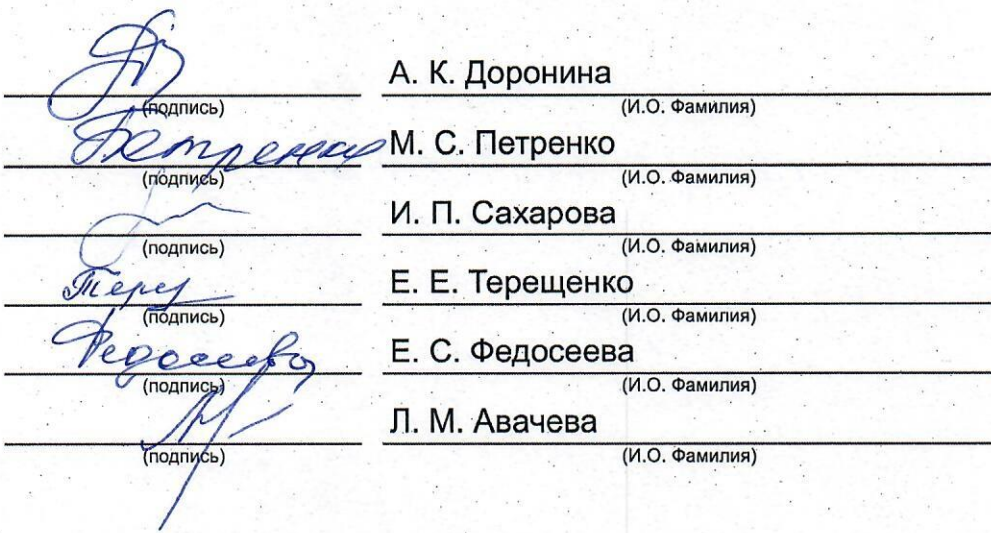 А. К. Доронина
(подпись) (И.О. Фамилия)
Петренко М. С. Петренко
(подпись) (И.О. Фамилия)
И. П. Сахарова
(подпись) (И.О. Фамилия)
Тере Е. Е. Терещенко
(подпись) (И.О. Фамилия)
Федосеева Е. С. Федосеева
(подпись) (И.О. Фамилия)
Л. М. Авачева
(подпись) (И.О. Фамилия)